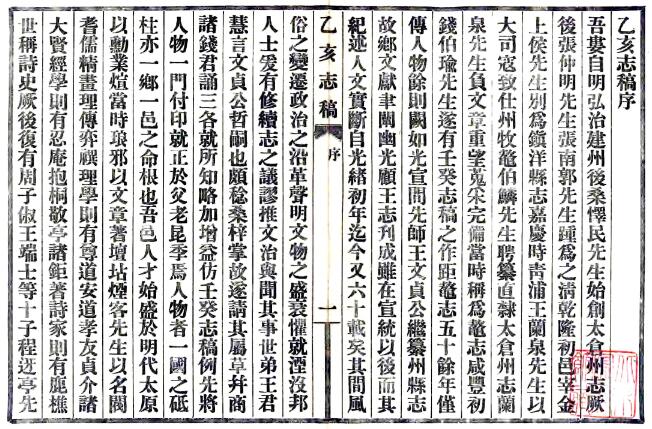 乙亥志稿序
吾婁自明弘治建州後桑懌民先生始創太倉州志厥
後張仲明先生張南郭先生踵爲之清乾隆初邑宰金
上侯先生別爲鎭洋縣志嘉慶時靑浦王蘭泉先生以
大司寇致仕州牧鼇伯麟先生聘纂直隸太倉州志蘭
泉先生負文章重望蒐采完備當時稱爲鼇志咸豐初
錢伯瑜先生遂有壬癸志稿之作距鼇志五十餘年僅
傳人物餘則闕如光宣間先師王文貞公繼纂州縣志
故鄕文獻聿闡幽光顧王志刋成雖在宣統以後而其
紀述人文實斷自光緖初年迄今又六十載矣其間風
乙亥志稿
序
一
俗之變遷政治之沿革聲明文物之盛衰懼就湮沒邦
人士爰有修續志之議謬推文治與聞其事世弟王君
慧言文貞公哲嗣也頗稔桑梓掌故遂請其屬草幷商
諸錢君誦三各就所知略加增益仿壬癸志稿例先將
人物一門付印就正於父老昆季焉人物者一國之砥
柱亦一鄕一邑之命根也吾邑人才始盛於明代太原
以勳業煊當時琅邪以文章著壇坫煙客先生以名閥
耆儒精畫理傳弈禩理學則有尊道安道孝友貞介諸
大賢經學則有忍庵抱桐敬亭諸鉅著詩家則有鹿樵
世稱詩史厥後復有周子俶王端士等十子程迓亭先